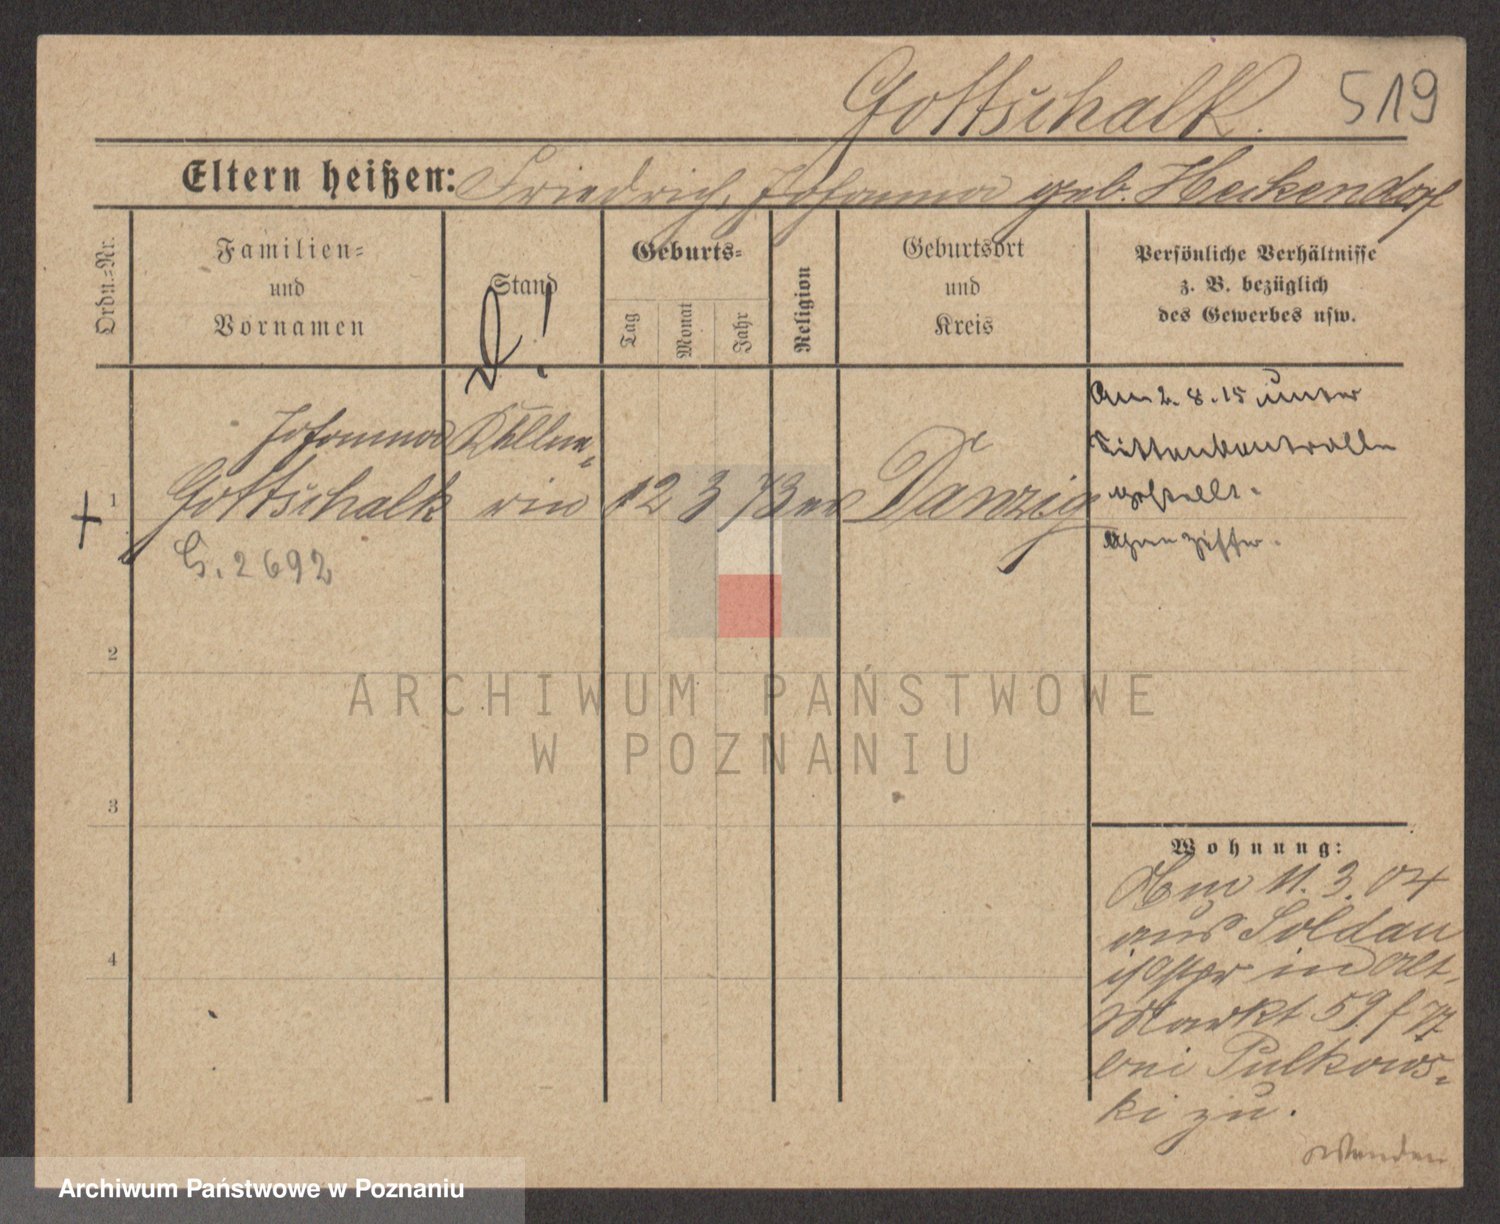 Gottschalk. 519
Eltern heißen: Friedrich, Johanna geb. Heckendorf
Ordn.=Nr.
Familien=
und
Vornamen
Stand
Geburts=
Tag
Monat
Jahr
Religion
Geburtsort
und
Kreis
Persönliche Verhältnisse
z. B. bezüglich
des Gewerbes usw.
D!
1
Johanna
Gottschalk
G. 2692
Kellne=
rin
12 3 73 ev
Danzig
Am 2. 8. 15 unter
Sittenkontrolle
gestellt.
2
3
4
Wohnung:
Am 11. 3. 04
aus Soldau
in Alt.
Markt 59
bei Pulkows=
ki zu.
wenden
ARCHIWUM PAŃSTWOWE
W POZNANIU
Archiwum Państwowe w Poznaniu